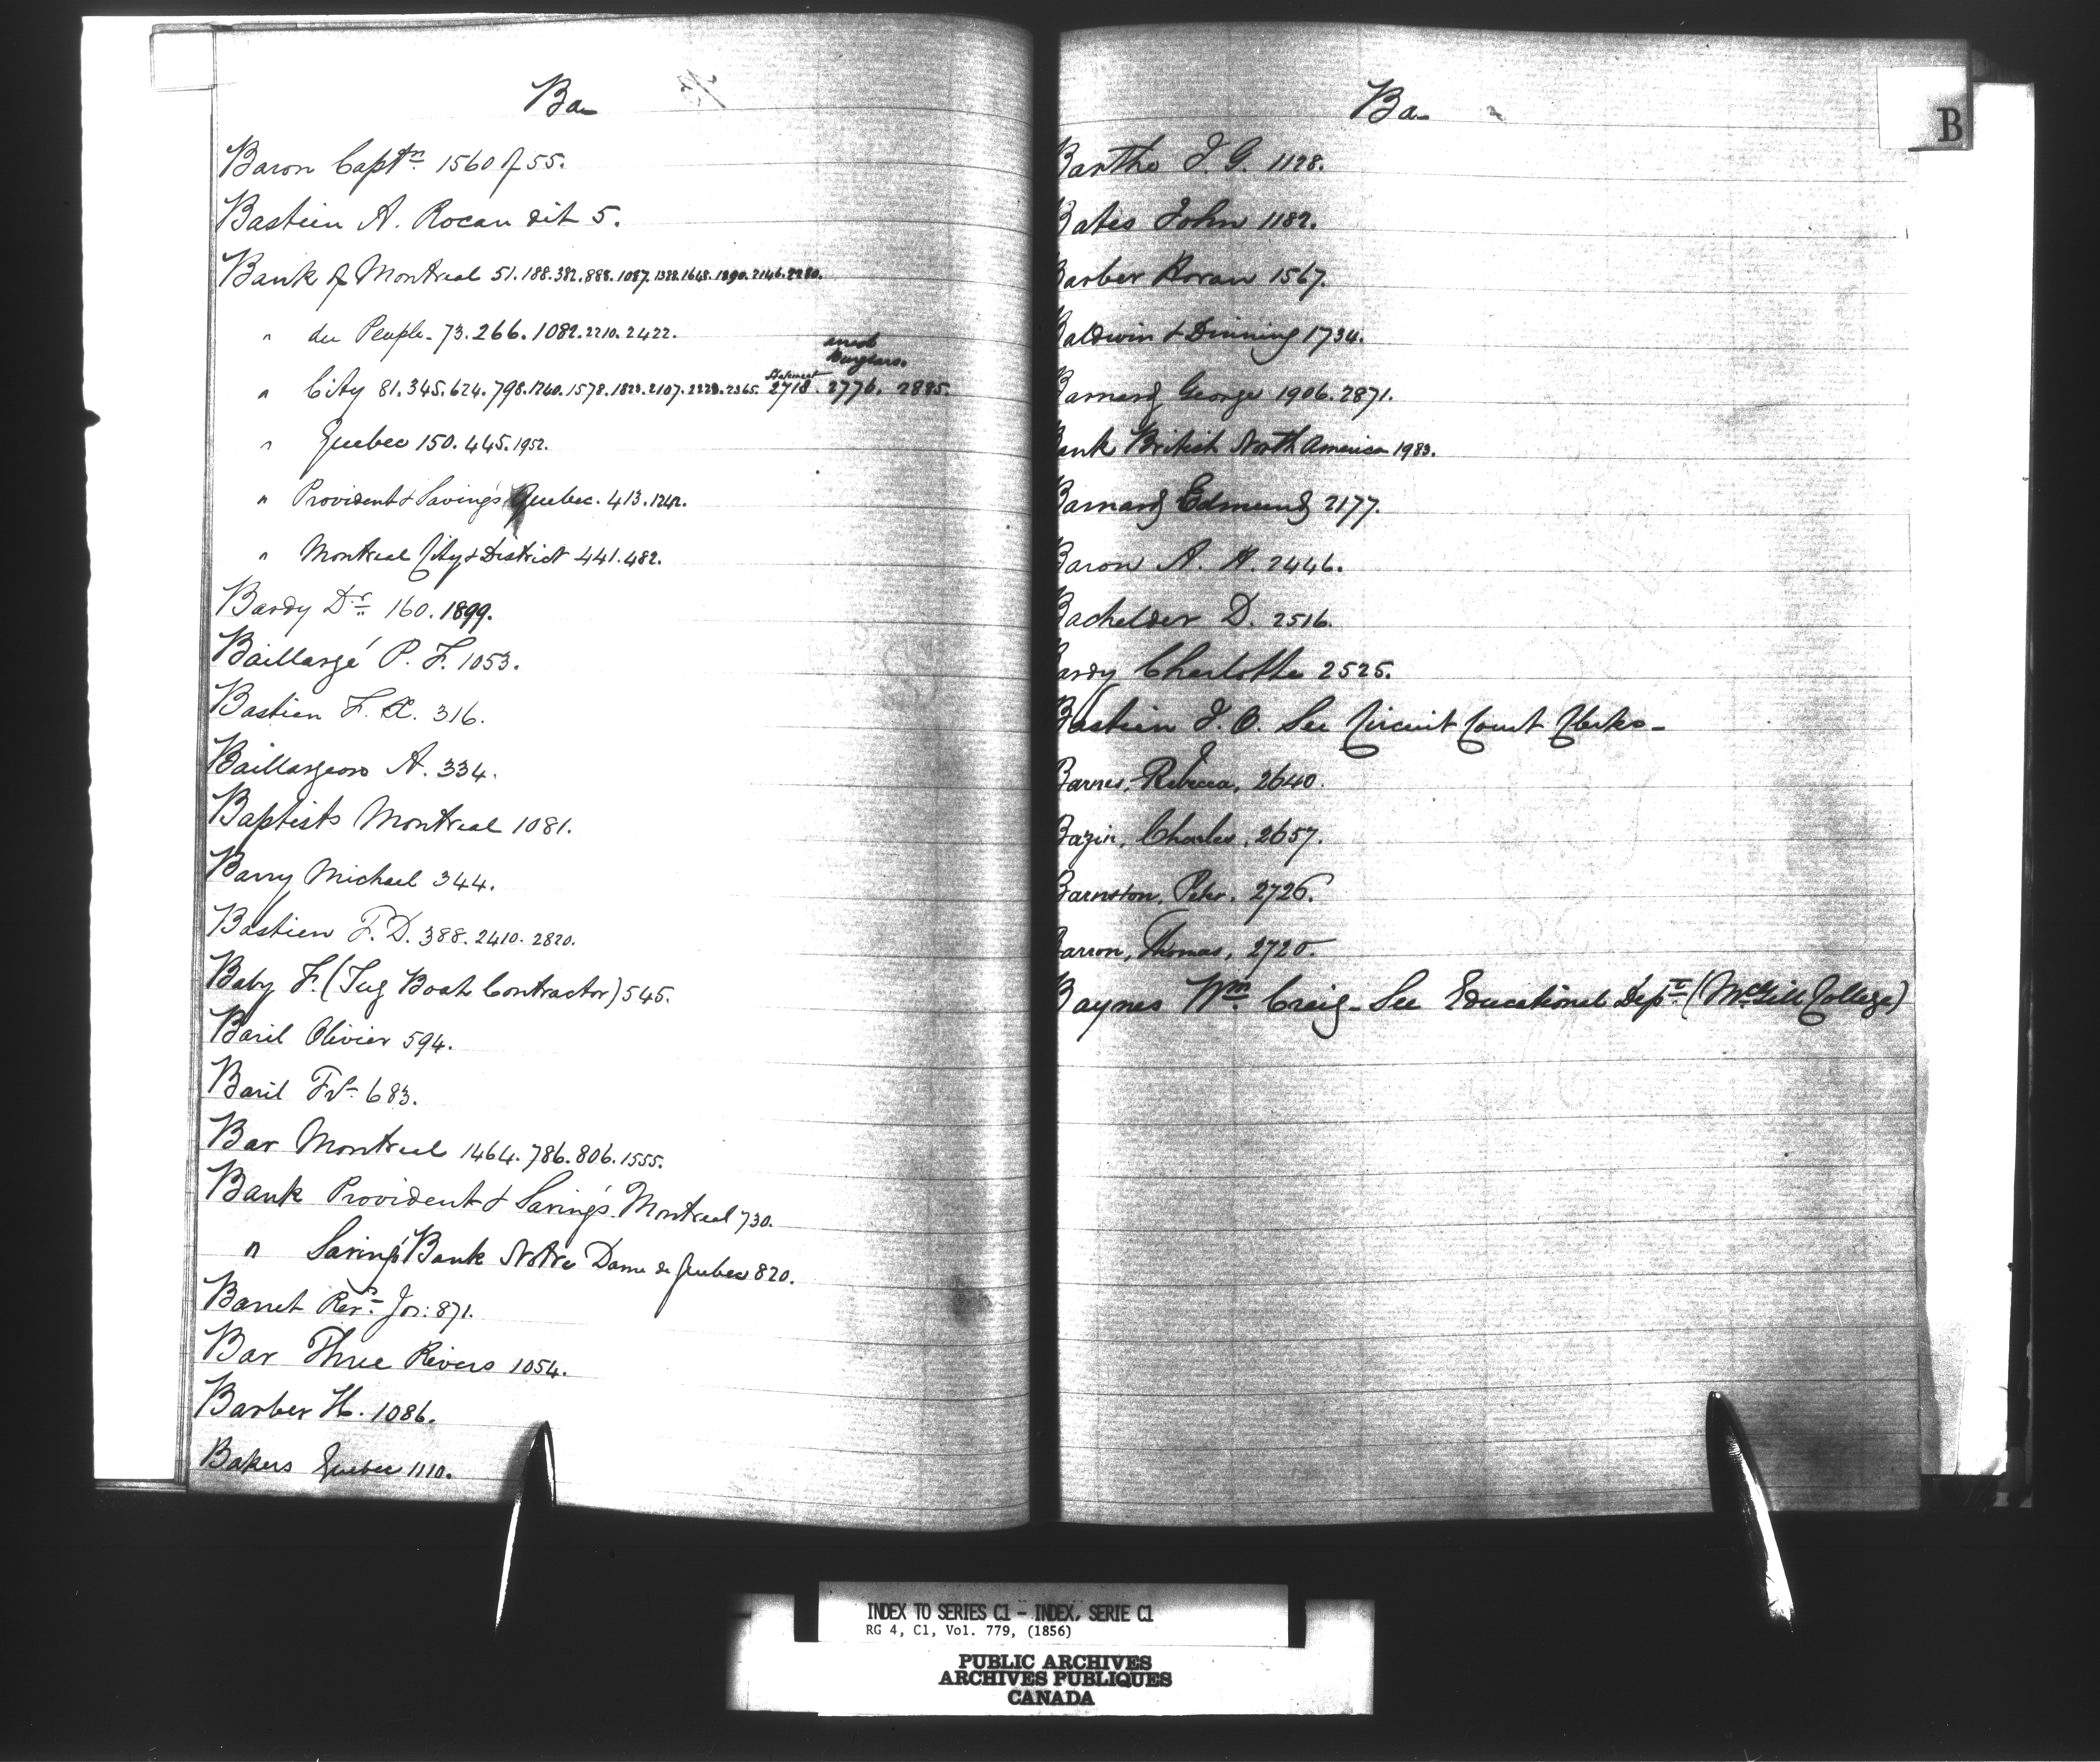 Ba
Baron Captn 1560 of 55.
Bastien A. Rocan dit 5.
Bank of Montreal 51.188.382.888.1087.1388.1648.1890.2146.2280.
" du Peuple- 73.266.1082.2210.2422.
Burglars.
Statement
" City 81.345.624.798.1240.1578.1823.2107.2229.2365. 2718. 2776. 2885.
" Quebec 150.445.1952.
" Provident & Saving's Quebec. 413.1242.
" Montreal City & District 441.482.
Bardy Dr 160.1899.
Baillargé P. F. 1053.
Bastien F. X. 316.
Baillargeon A. 334.
Baptists Montreal 1081.
Barry Michael 344.
Bastien F. D. 388.2410.2820.
Baby F. (Tug Boat Contractor) 545.
Baril Olivier 594.
Baril Frs 683.
Bar Montreal 1464.786.806.1555.
Bank Provident & Saving's Montreal 730.
" Saving's Bank Notre Dame de Quebec 820.
Barret Revd Jos: 871.
Bar Three Rivers 1054.
Barber H. 1086.
Bakers Quebec 1110.
Ba-
B
Barthe J. G. 1128.
Bates John 1182.
Barber 1567.
Baldwin & Dinning 1734.
Barnard George 1906.2871.
Bank British North America 1983.
Barnard Edmund 2177.
Baron A. H. 2446.
Bachelder D. 2516.
Bardy Charlotte 2525.
Bastien J. O. See Circuit Court Clerks-
Barnes, Rebecca, 2640.
Bazin, Charles, 2657.
Barnston, Peter, 2726.
Barron, Thomas, 2720.
Baynes Wm. Craig- See Educational Dept (McGill College)
INDEX TO SERIES C1 - INDEX, SERIE C1
RG 4, C1, Vol. 779, (1856)
PUBLIC ARCHIVES
ARCHIVES PUBLIQUES
CANADA